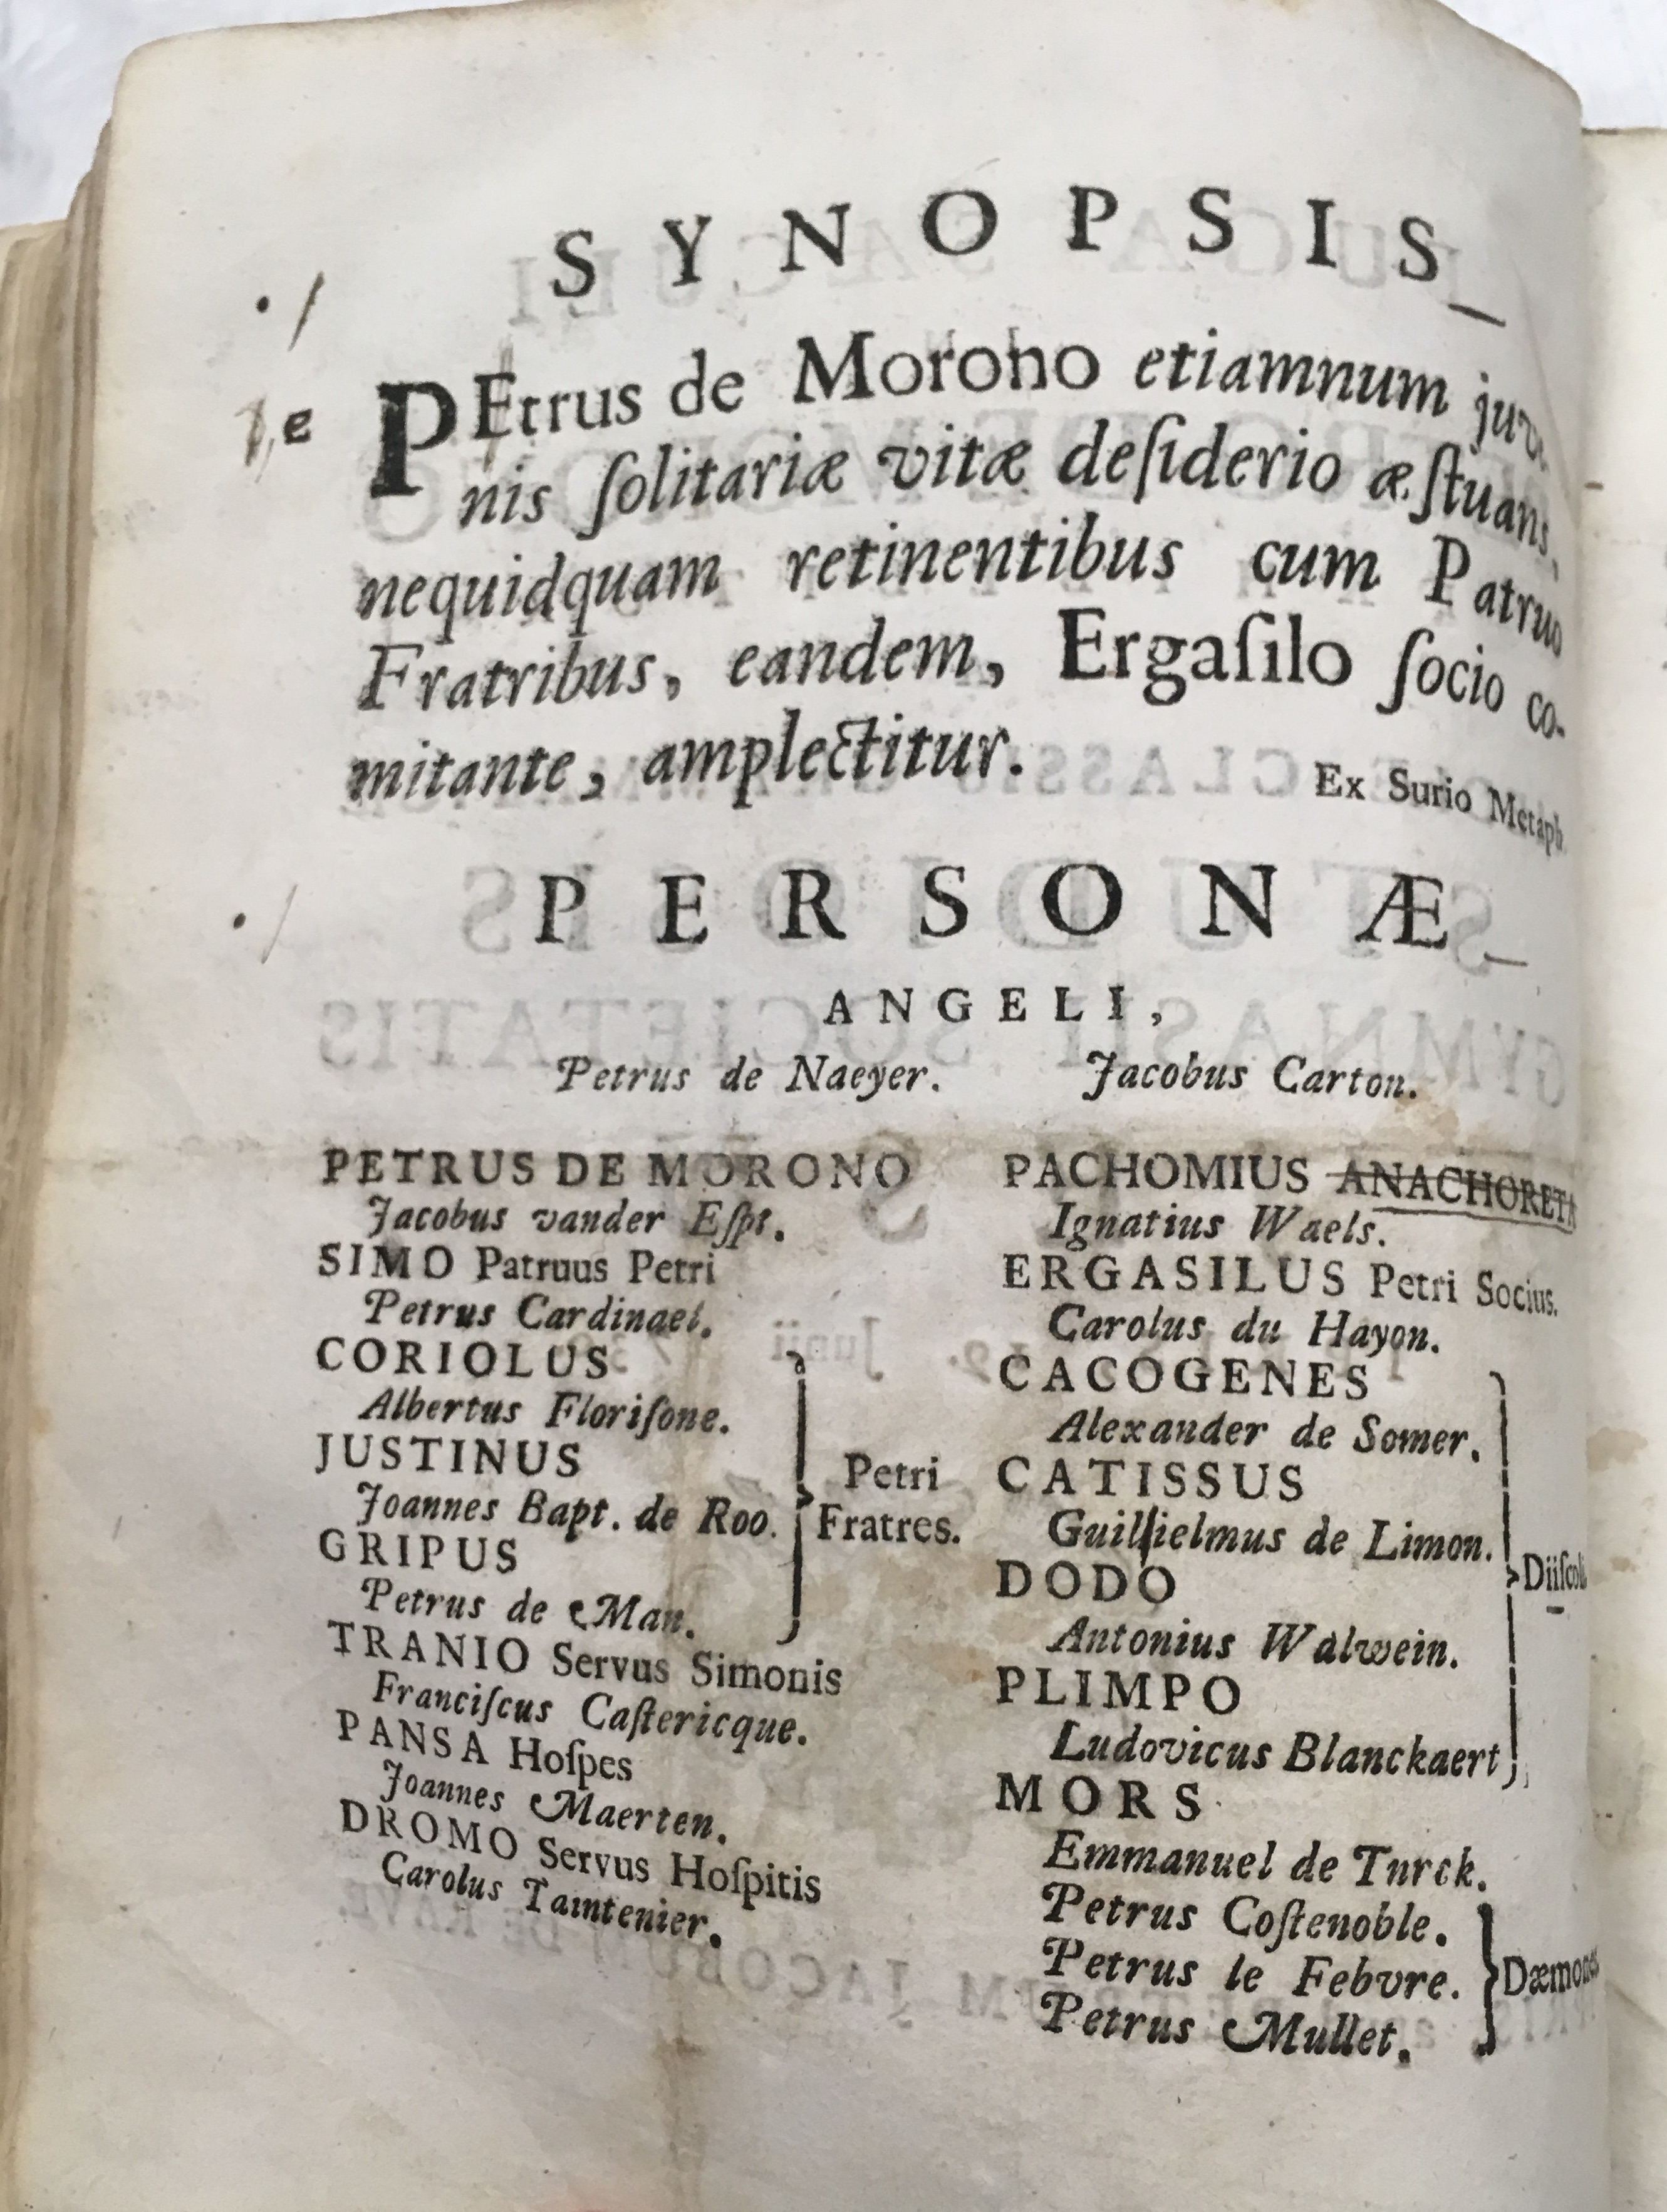 SYNOPSIS
PEtrus de Morono etiamnum juve-
nis ſolitariæ vitæ deſiderio æſtuans,
nequidquam retinentibus cum Patruo
Fratribus, eandem, Ergaſilo ſocio co-
mitante, amplectitur.
Ex Surio Metaph.
PERSONÆ
ANGELI,
Petrus de Naeyer. Jacobus Carton.
PETRUS DE MORONO
Jacobus vander Eſpt.
SIMO Patruus Petri
Petrus Cardinael.
CORIOLUS
Albertus Floriſone.
JUSTINUS
Joannes Bapt. de Roo.
GRIPUS
Petrus de Man.
Petri
Fratres.
TRANIO Servus Simonis
Franciſcus Caſtericque.
PANSA Hoſpes
Joannes Maerten.
DROMO Servus Hoſpitis
Carolus Taintenier.
PACHOMIUS ANACHORETA
Ignatius Waels.
ERGASILUS Petri Socius.
Carolus du Hayon.
CACOGENES
Alexander de Somer.
CATISSUS
Guillielmus de Limon.
DODO
Antonius Walwein.
PLIMPO
Ludovicus Blanckaert
Diiſcoli
MORS
Emmanuel de Tnrck.
Petrus Coſtenoble.
Petrus le Febvre.
Petrus Mullet.
Dæmones